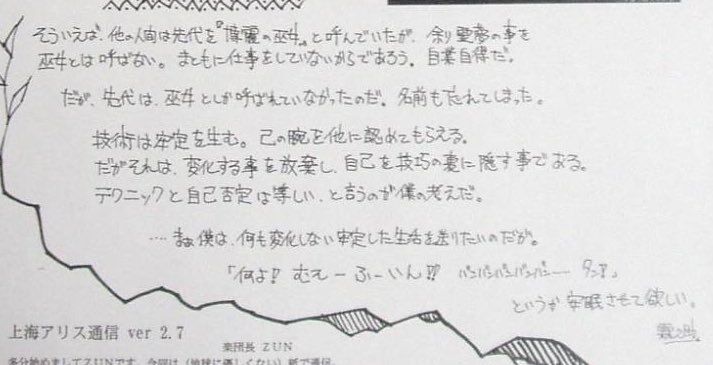 そういえば、他の人間は先代を『博麗の巫女』と呼んでいたが、余り霊夢の事を
巫女とは呼ばない。まともに仕事をしていないからであろう。自業自得だ。
だが、先代は、巫女としか呼ばれていなかったのだ。名前も忘れてしまった。
技術は安定を生む。己の腕を他に認めてもらえる。
だがそれは、変化する事を放棄し、自己を技巧の裏に隠す事である。
テクニックと自己否定は等しい、と言うのが僕の考えだ。
…まぁ僕は、何も変化しない安定した生活を送りたいのだが。
「何よ!! むそーふーいん!! バンバンバンバンバンー
というか安眠させて欲しい。
霖之助
上海アリス通信 ver 2.7
楽団長 ZUN
多分始めましてZUNです。今回は(地球に優しくない)紙で通信。